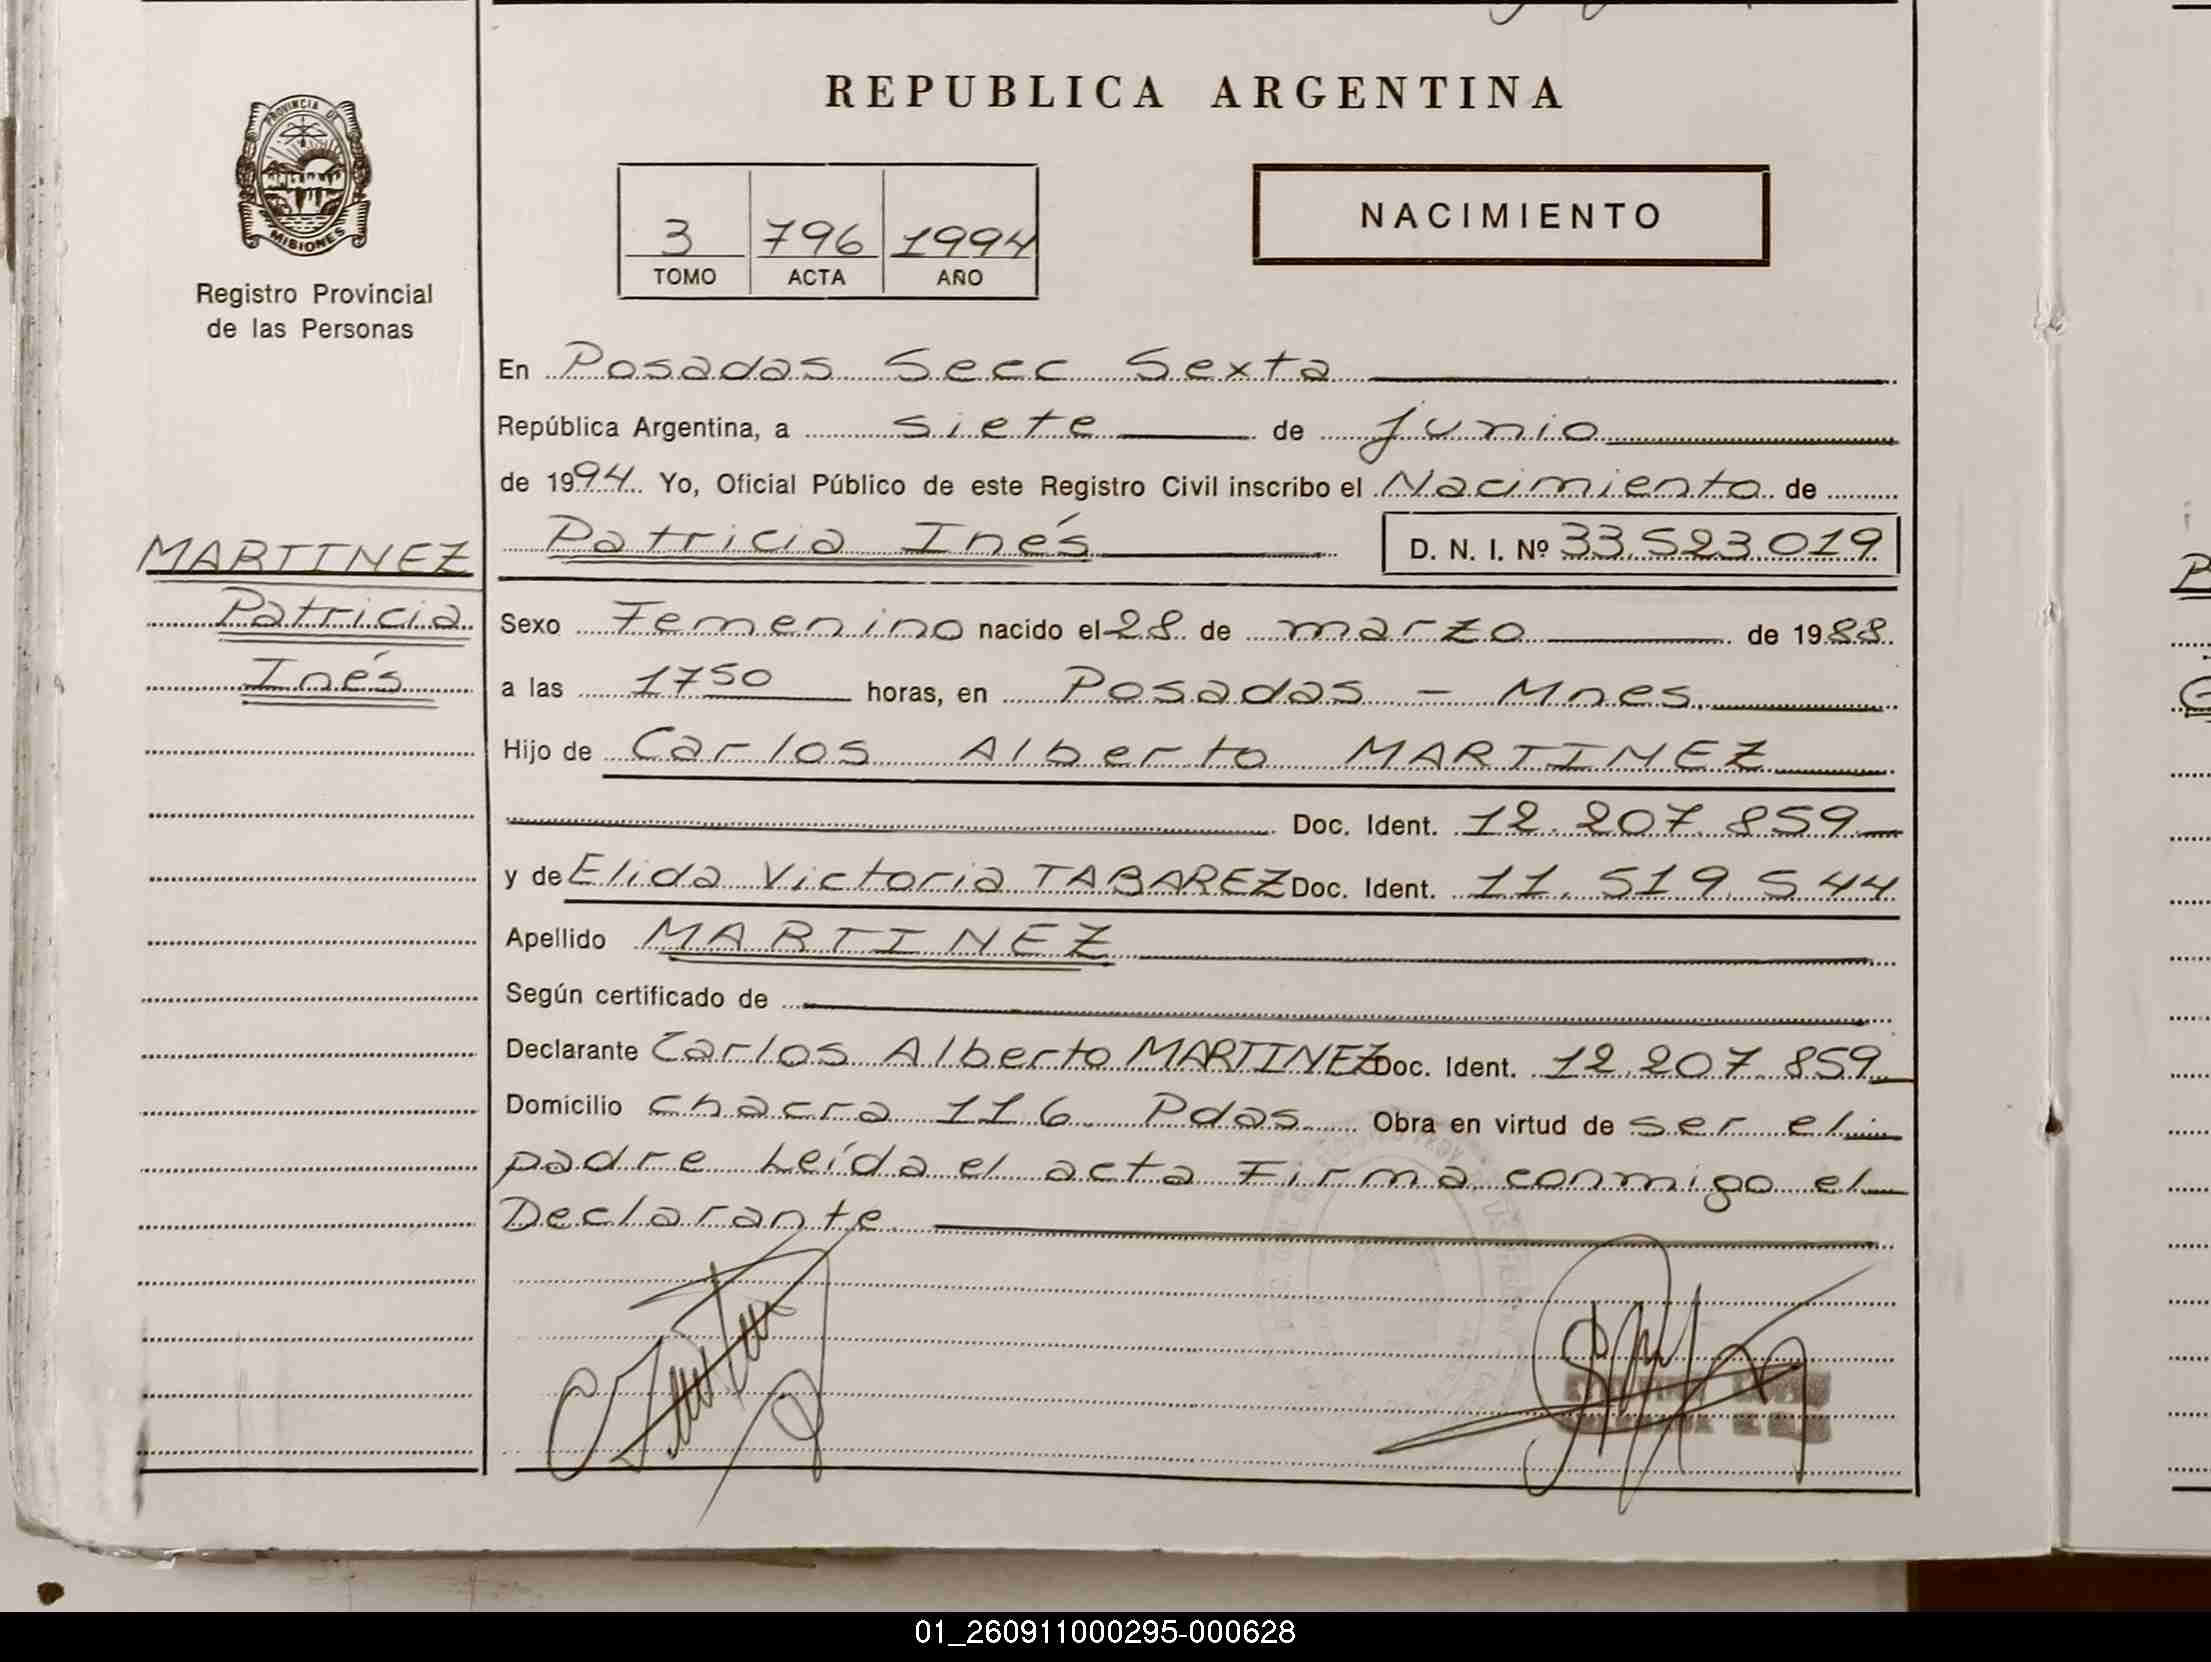 PROVINCIA DE
MISIONES
Registro Provincial
de las Personas
MARTINEZ
Patricia
Inés
REPUBLICA ARGENTINA
3 796 1994
TOMO ACTA AÑO
NACIMIENTO
En Posadas Secc Sexta
República Argentina, a siete de junio
de 1994. Yo, Oficial Público de este Registro Civil inscribo el Nacimiento de
Patricia Inés D. N. I. Nº 33.523.019
Sexo Femenino nacido el 28 de marzo de 1988.
a las 1750 horas, en Posadas - Mnes.
Hijo de Carlos Alberto MARTINEZ
Doc. Ident. 12.207.859
y de Elida Victoria TABAREZ Doc. Ident. 11.519.544
Apellido MARTINEZ
Según certificado de
Declarante Carlos Alberto MARTINEZ Doc. Ident. 12.207.859
Domicilio chacra 116 Pdas. Obra en virtud de ser el
padre Leída el acta Firma conmigo el
Declarante
01_260911000295-000628